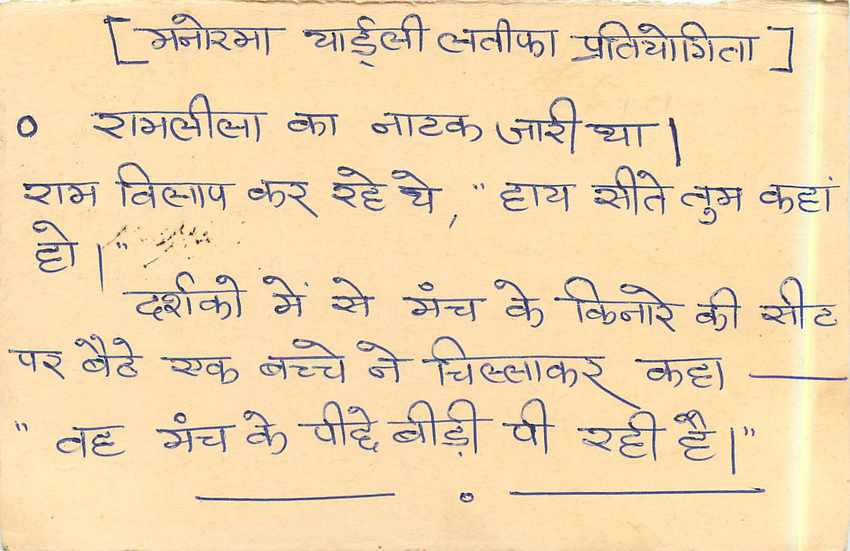 [मनोरमा थार्ड्ली लतीफा प्रतियोगिता]
० रामलीला का नाटक जारी था।
राम विलाप कर रहे थे, "हाय सीते तुम कहां
हो।"
दर्शको में से मंच के किनारे की सीट
पर बैठे एक बच्चे ने चिल्लाकर कहा —
"वह मंच के पीछे बीड़ी पी रही है।"